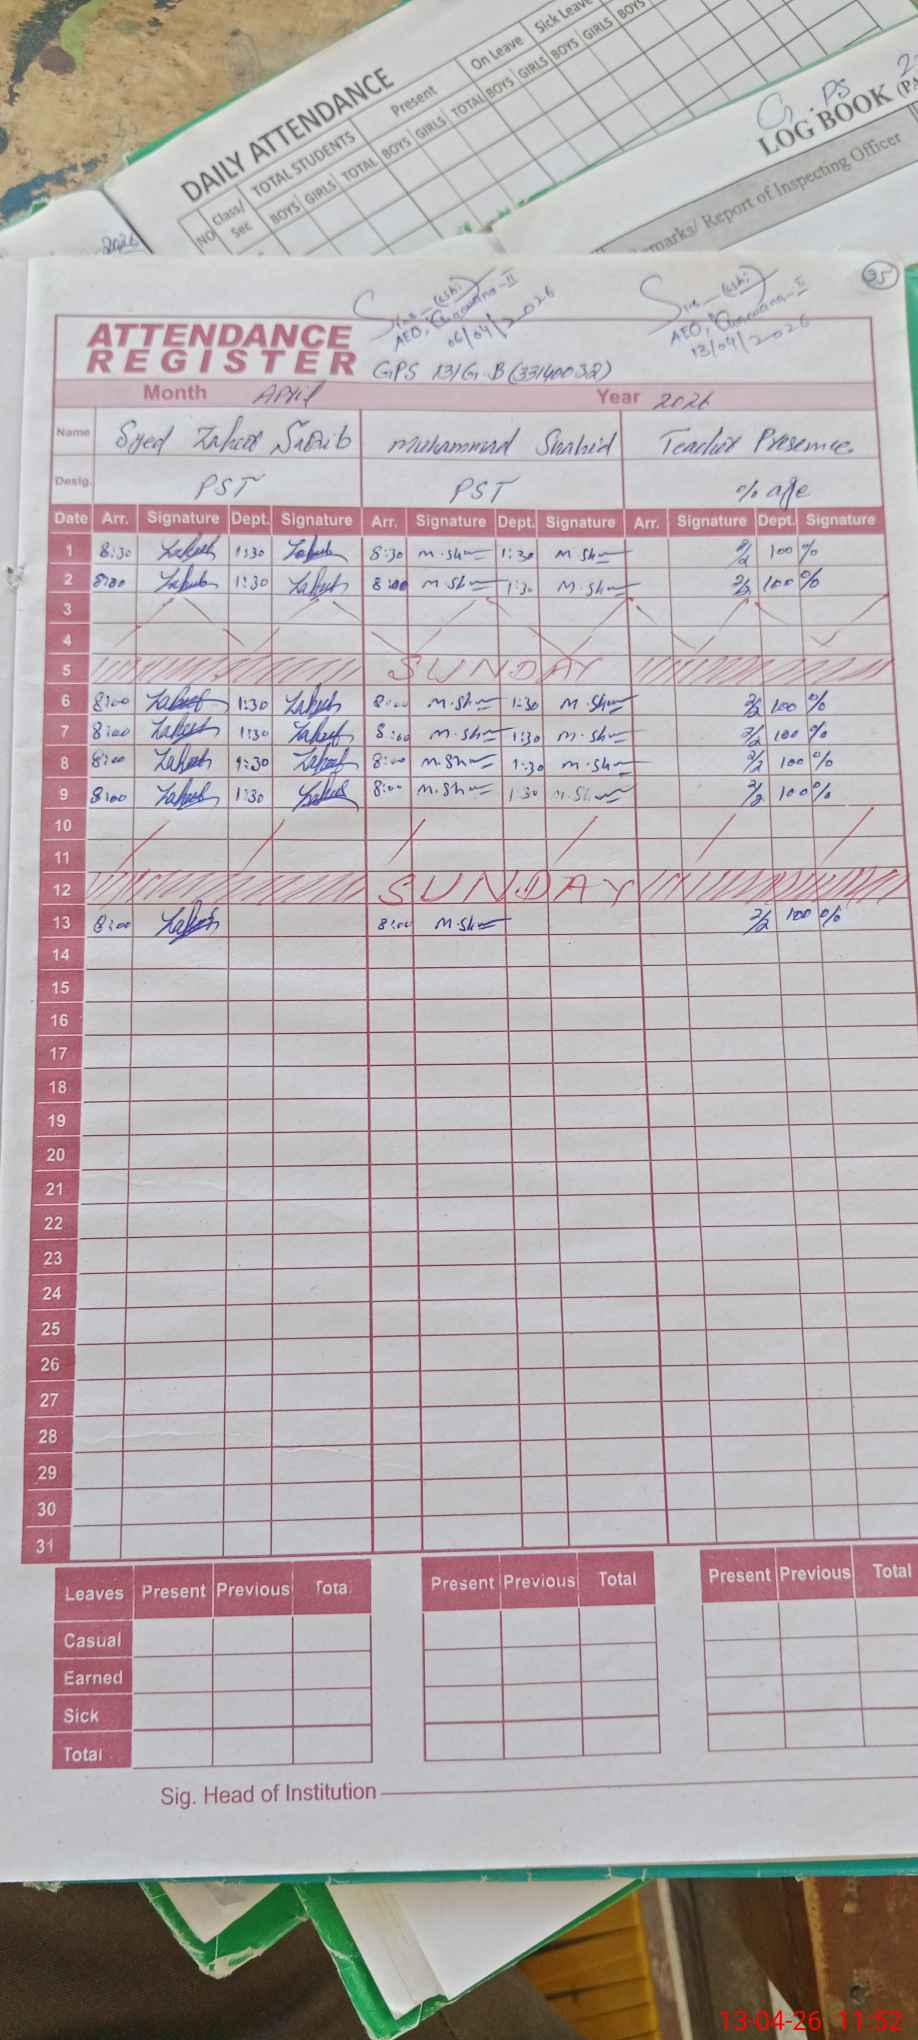 DAILY ATTENDANCE
NO Class/ Sec TOTAL STUDENTS Present On Leave Sick Leave
BOYS GIRLS TOTAL BOYS GIRLS TOTAL BOYS GIRLS BOYS GIRLS BOYS
G.PS
LOG BOOK
Remarks/ Report of Inspecting Officer
2026
35
AEO, II
06/04/2026
AEO, II
13/04/2026
ATTENDANCE
REGISTER
GPS 131 G.B (33140032)
Month April Year 2026
Name Syed Muhammad Shahid Teacher Presence
Desig. PST PST % age
Date Arr. Signature Dept. Signature Arr. Signature Dept. Signature Arr. Signature Dept. Signature
1 8:30 1:30 8:30 1:30 2/2 100 %
2 8:00 1:30 8:00 1:30 2/2 100 %
3
4
5 SUNDAY
6 8:00 1:30 8:00 1:30 2/2 100 %
7 8:00 1:30 8:00 1:30 2/2 100 %
8 8:00 1:30 8:00 1:30 2/2 100 %
9 8:00 1:30 8:00 1:30 2/2 100 %
10
11
12 SUNDAY
13 8:00 8:00 2/2 100 %
14
15
16
17
18
19
20
21
22
23
24
25
26
27
28
29
30
31
Leaves Present Previous Total Present Previous Total Present Previous Total
Casual
Earned
Sick
Total
Sig. Head of Institution
13-04-26 11:52